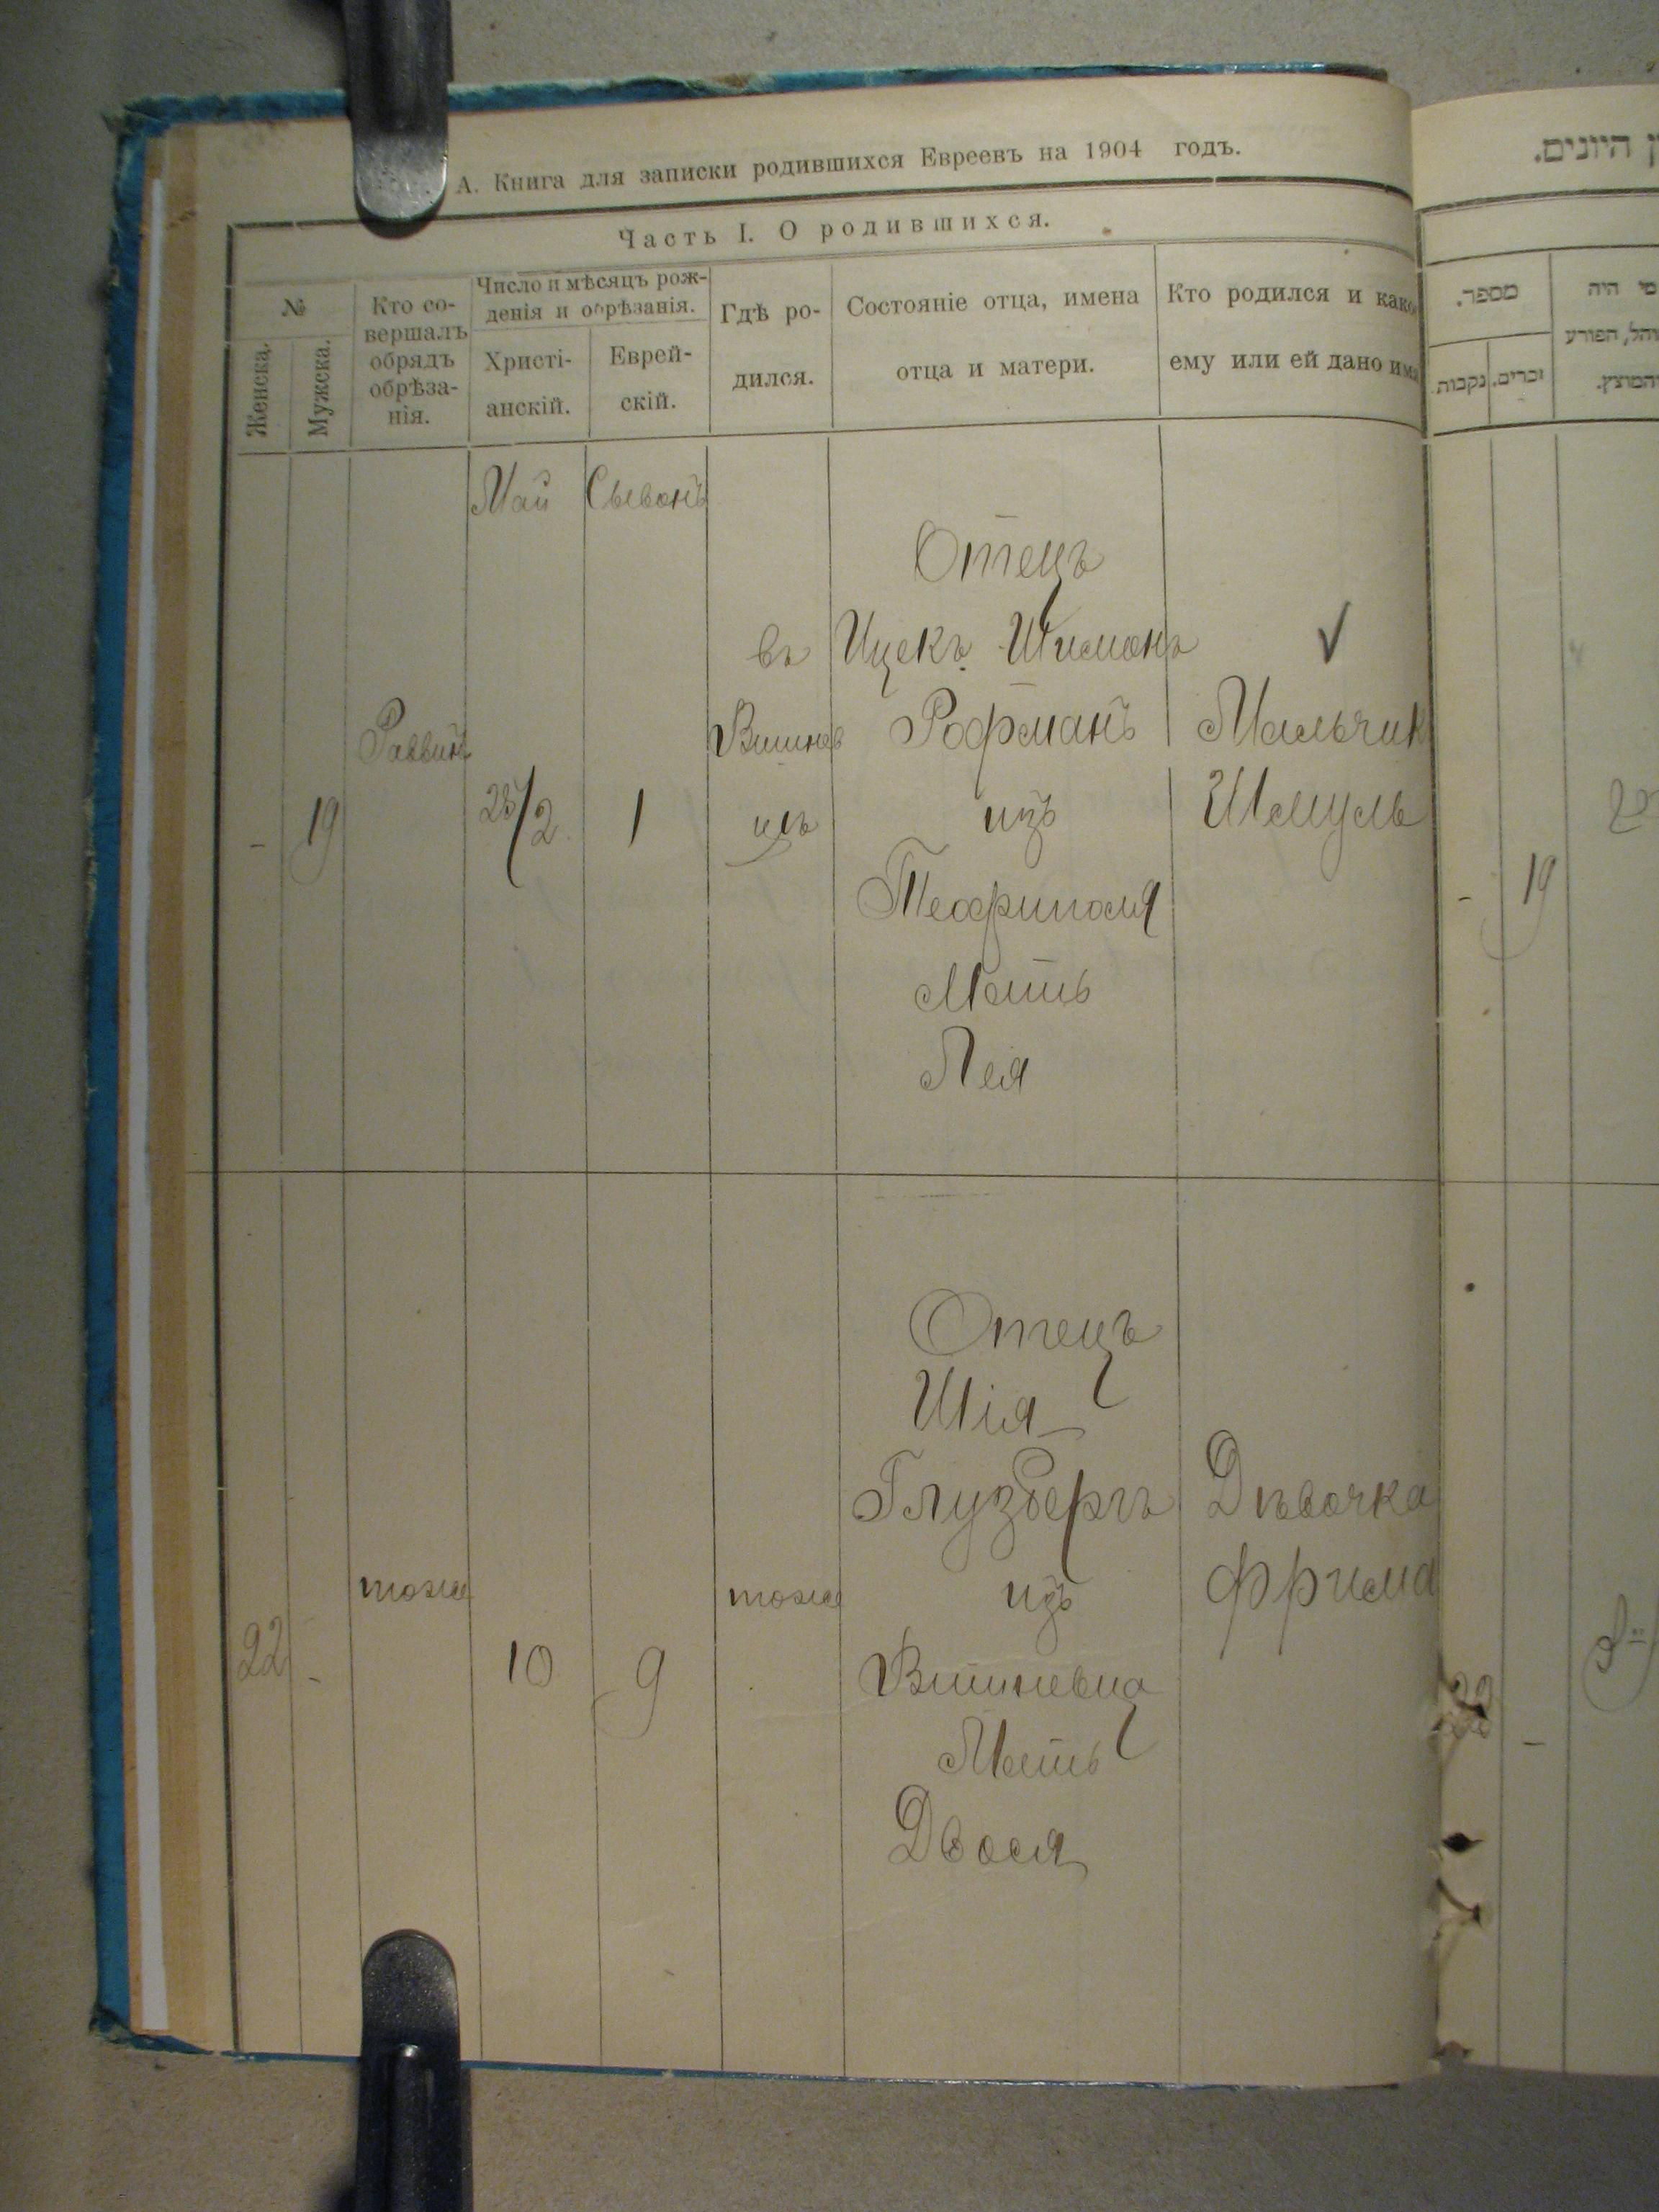 А. Книга для записки родившихся Евреевъ на 1904 годъ.
Часть I. О родившихся.
№
Женска.
Мужска.
Кто со-
вершалъ
обрядъ
обрѣза-
нія.
Число и мѣсяцъ рож-
денія и обрѣзанія.
Христі-
анскій.
Еврей-
скій.
Гдѣ ро-
дился.
Состояніе отца, имена
отца и матери.
Кто родился и како
ему или ей дано имя
Май
Сывонъ
-
19
Раввинъ
28/2
1
въ
Вишнев
цъ
Отецъ
Ицекъ Шимонъ
Рофманъ
изъ
Теофиполя
Мать
Лея
√
Мальчик
Шмуль
22
-
тоже
10
9
тоже
Отецъ
Шія
Глузбергъ
изъ
Вишневца
Мать
Двося
Дѣвочка
Фрима
ן היונים.
מספר.
נקבות.
זכרים.
מי היה
והל, הפורע
והמוצץ.
-
19
22
-